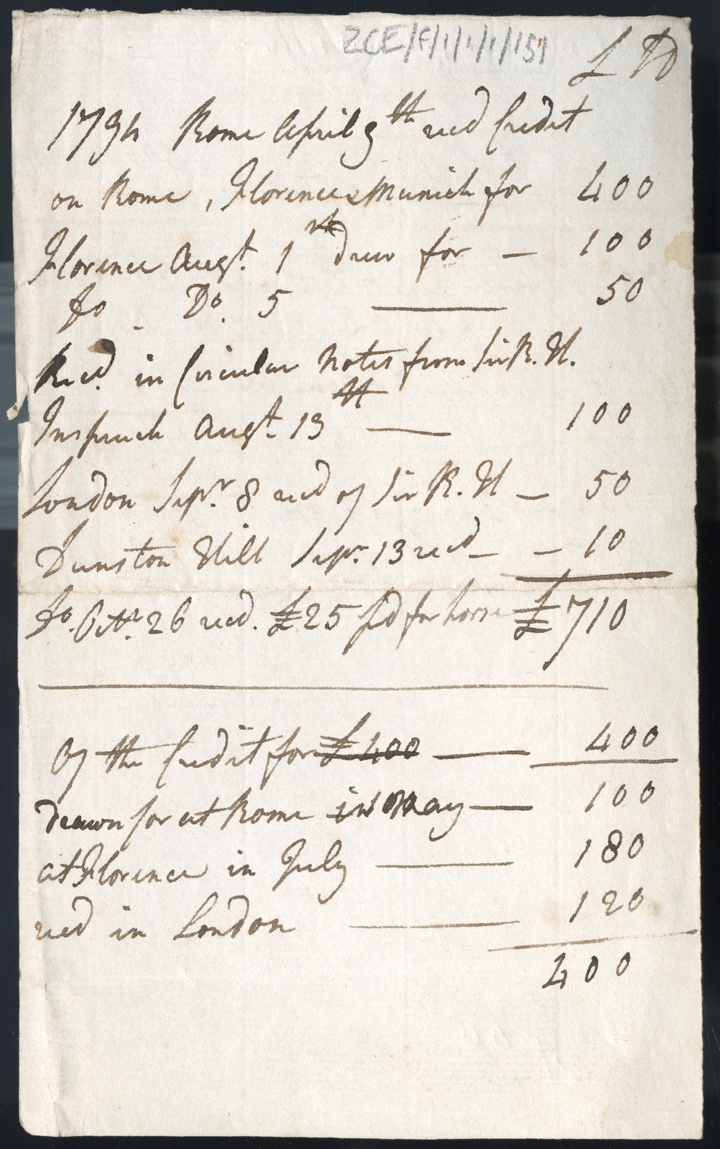 ZCE/F/1/1/1/151
£
1794 Rome April 9th recd Credit
on Rome, Florence & Munich for 400
Florence Augt. 1st drew for — 100
Do Do. 5 — 50
Recd. in Circular Notes from Sir R. H.
Inspruch Augt. 13th — 100
London Sepr. 8 recd of Sir R. H — 50
Dunston Hill Sepr. 13 recd — — 10
Do. Octr. 26 recd. £25 pd for horse £710
Of the Credit for £400 — 400
drawn for at Rome in May — 100
at Florence in July — 180
recd in London — 120
400